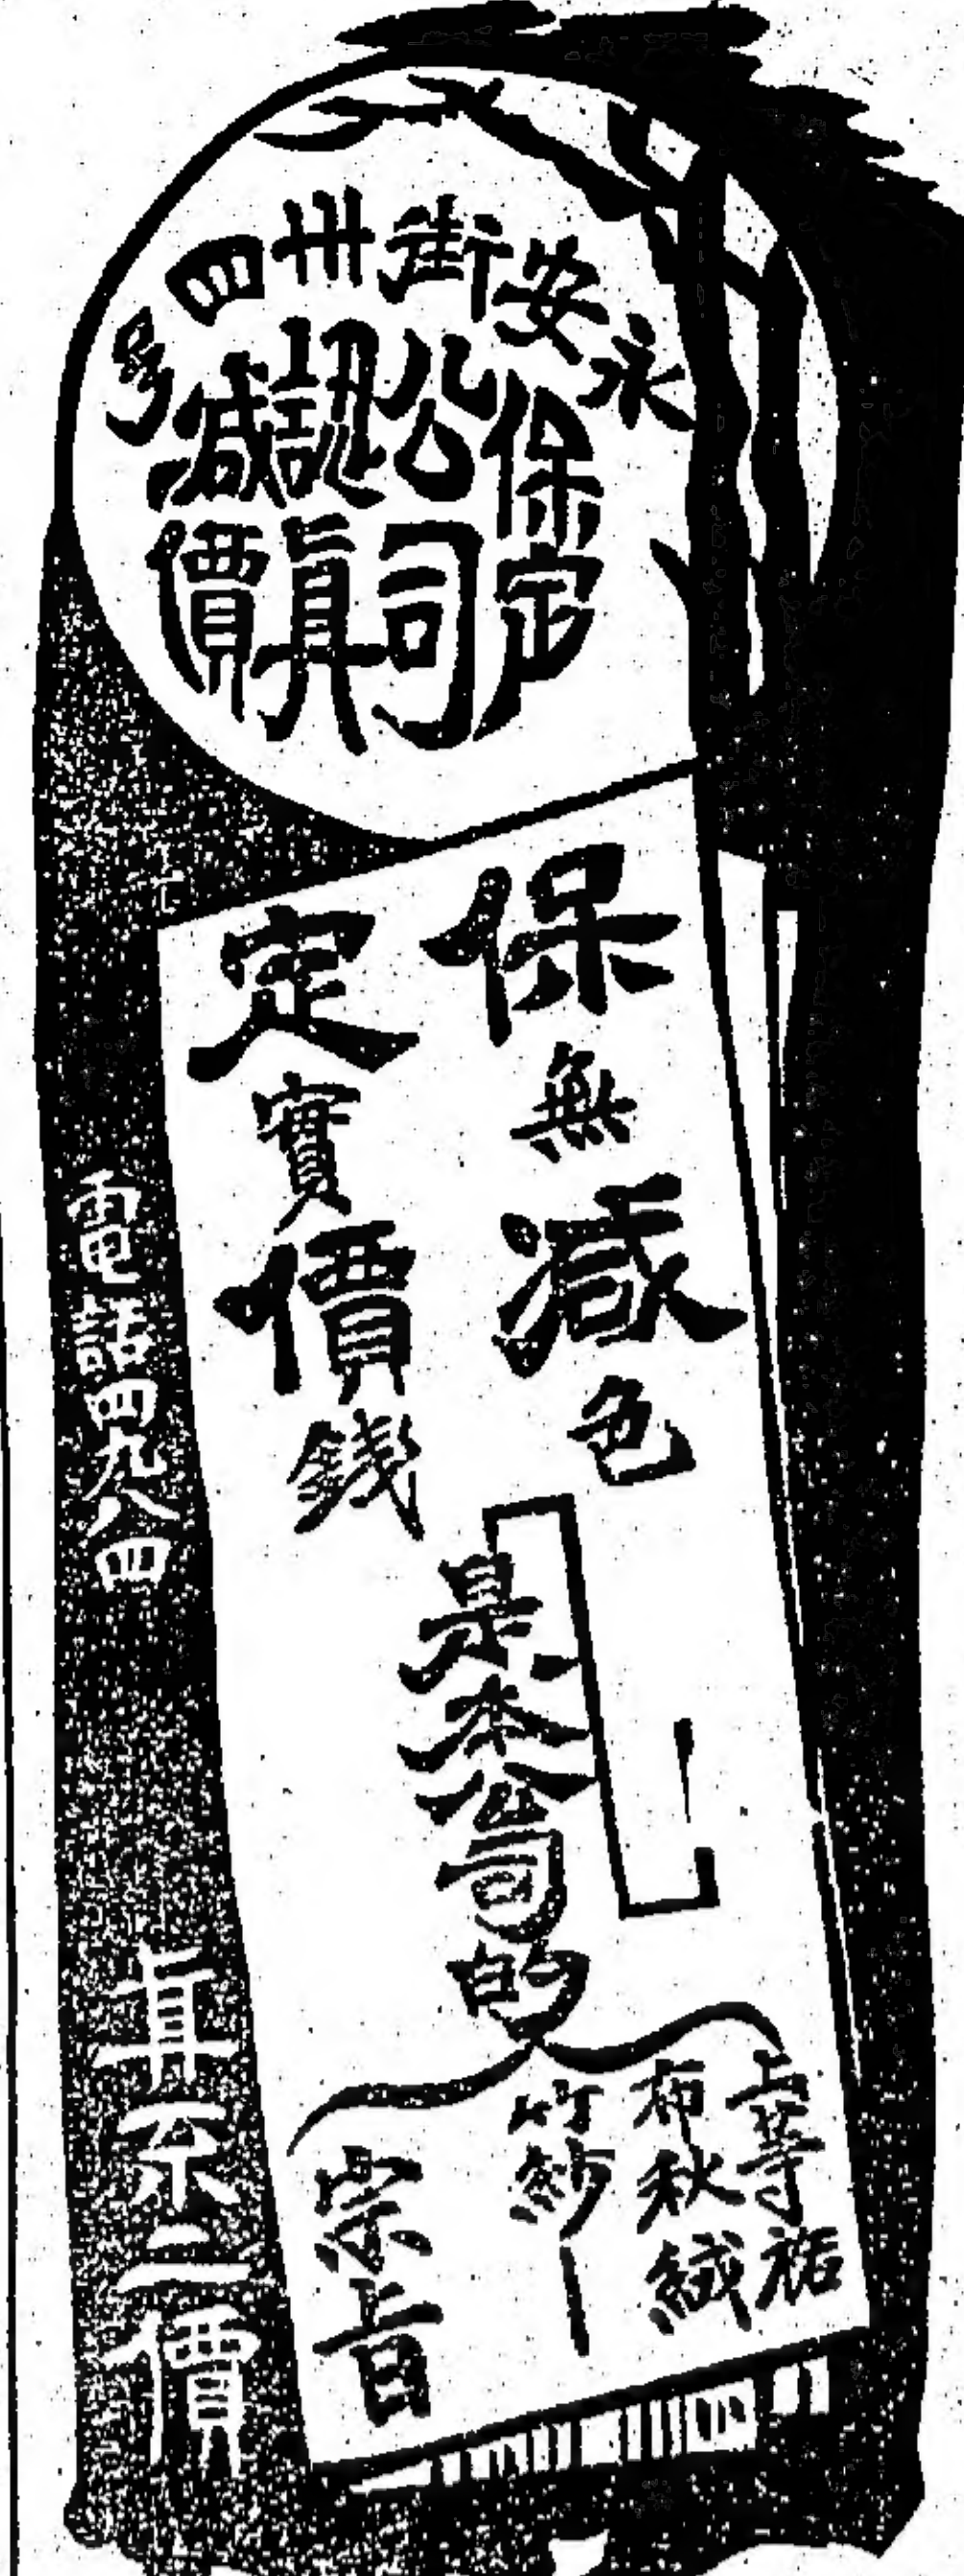 永安街卅四号
保定
公司
認眞
減價
保無減色
定實價錢
是本公司的
上等祐
布秋絨
竹紗
宗旨
電話四九八四
真不二價